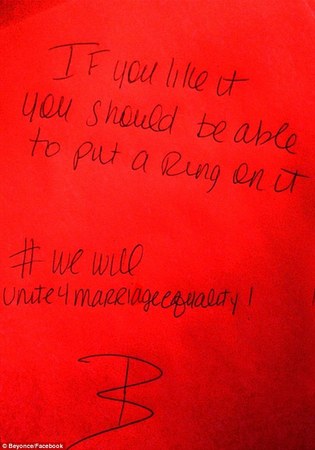 If you like it
you should be able
to put a Ring on it
# we will
unite4marriageequality!
B
© Beyonce/Facebook